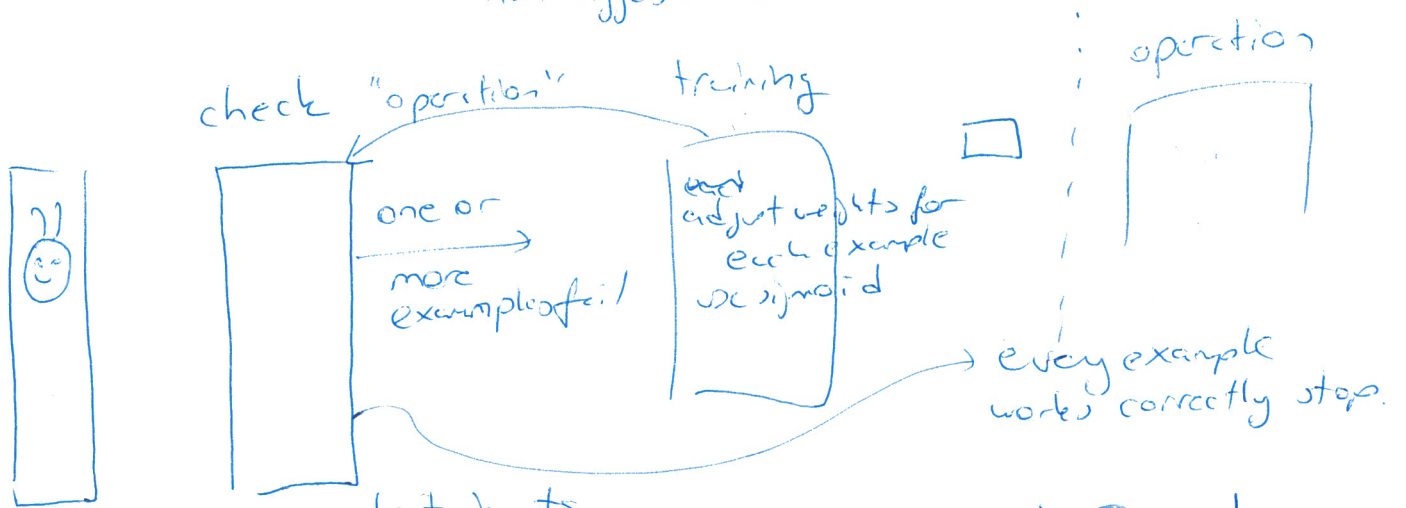 check "operation"
training
operation
one or
more
examples fail
adjust weights for
each example
use sigmoid
every example
works correctly stop.